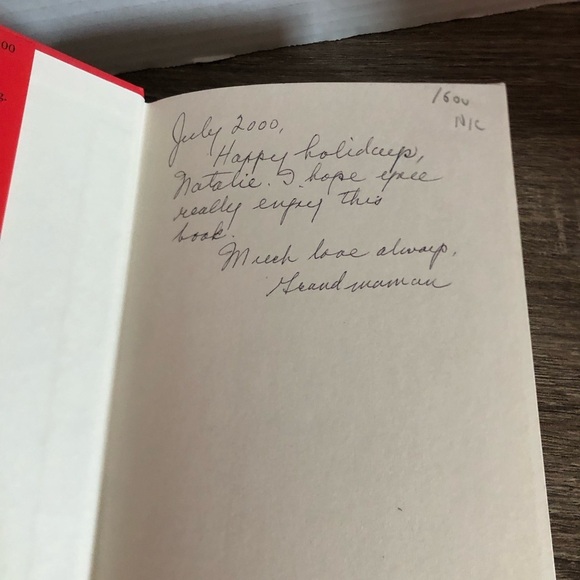 00
July 2000,
Happy holidays,
Natalie. I hope you
really enjoy this
book.
Much love always,
Grandmaman
N/C